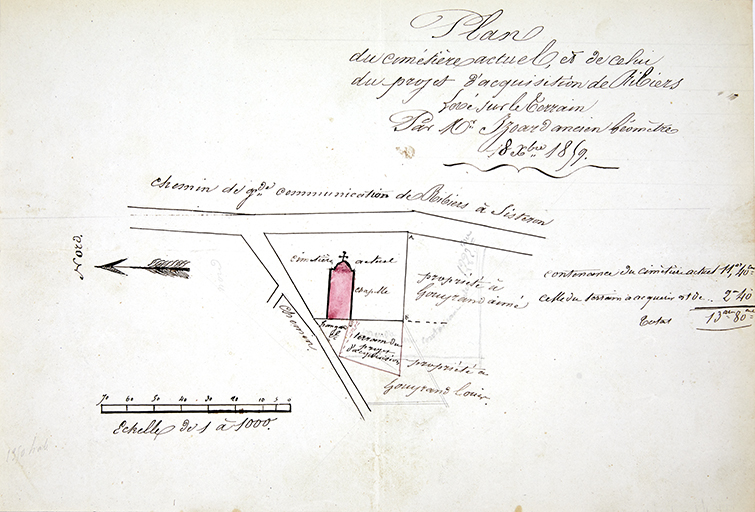 Plan
du cimétière actuel, et de celui
du projet d'acquisition de Ribiers
levé sur le Terrain
Par Mr. Izoard ancien Géomètre
18 Xbre 1859.
chemin de gde communication de Ribiers à Sisteron
Nord.
cimétière actuel
chapelle
A
B
propriété à
Gouyrand aîné
contenance du cimetière actuel 11 ares 40 ces
celle du terrain à acquérir est de .. 2 - 40
Total 13 ares 80 ces
chemin
terrain du
projet
d'acquisition
propriété à
Gouyrand Louis.
70 60 50 40 30 20 10 5 0
Echelle de 1 à 1000.